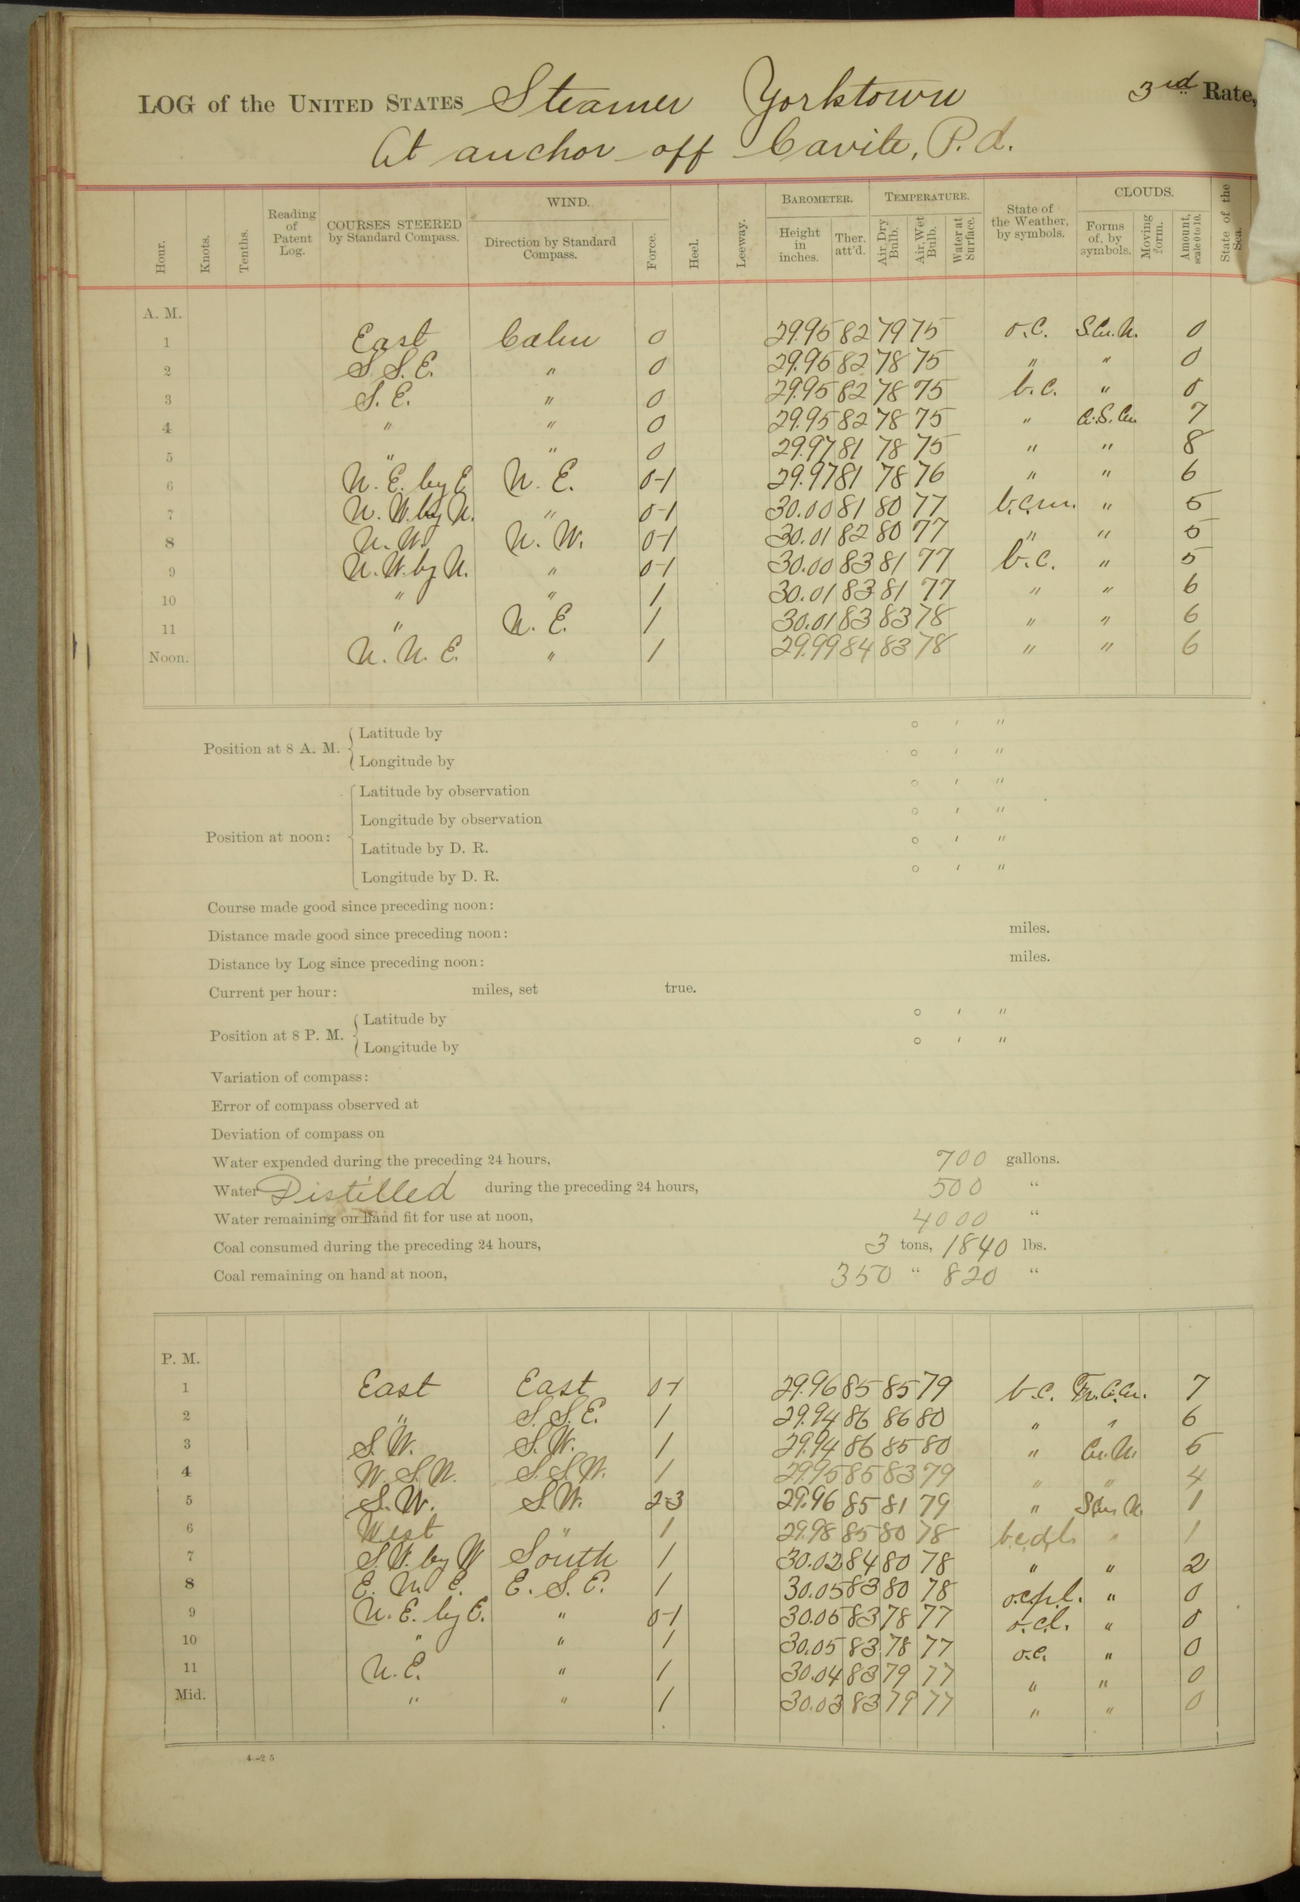 LOG of the UNITED STATES Steamer Yorktown 3rd Rate,
At anchor off Cavite, P.I.
Hour. Knots. Tenths. Reading of Patent Log. COURSES STEERED by Standard Compass. WIND. Direction by Standard Compass. Force. Heel. Leeway. BAROMETER. Height in inches. Ther. att'd. TEMPERATURE. Air, Dry Bulb. Air, Wet Bulb. Water at Surface. State of the Weather, by symbols. CLOUDS. Forms of, by symbols. Moving form. Amount, scale 0 to 10. State of the Sea.
A. M.
1 East Calm 0 29.95 82 79 75 o.c. S.Cu.N. 0
2 S.S.E. " 0 29.95 82 78 75 " " 0
3 S.E. " 0 29.95 82 78 75 b.c. " 0
4 " " 0 29.95 82 78 75 " C.S.Cu. 7
5 " " 0 29.97 81 78 75 " " 8
6 N.E. by E. N.E. 0-1 29.97 81 78 76 " " 6
7 N.W. by N. " 0-1 30.00 81 80 77 b.c.m. " 5
8 N.W. N.W. 0-1 30.01 82 80 77 " " 5
9 N.W. by N. " 0-1 30.00 83 81 77 b.c. " 5
10 " " 1 30.01 83 81 77 " " 6
11 " N.E. 1 30.01 83 83 78 " " 6
Noon. N.N.E. " 1 29.99 84 83 78 " " 6
Position at 8 A. M. Latitude by ° ′ ″
Longitude by ° ′ ″
Position at noon: Latitude by observation ° ′ ″
Longitude by observation ° ′ ″
Latitude by D. R. ° ′ ″
Longitude by D. R. ° ′ ″
Course made good since preceding noon:
Distance made good since preceding noon: miles.
Distance by Log since preceding noon: miles.
Current per hour: miles, set true.
Position at 8 P. M. Latitude by ° ′ ″
Longitude by ° ′ ″
Variation of compass:
Error of compass observed at
Deviation of compass on
Water expended during the preceding 24 hours, 700 gallons.
Water Distilled during the preceding 24 hours, 500 "
Water remaining on hand fit for use at noon, 4000 "
Coal consumed during the preceding 24 hours, 3 tons, 1840 lbs.
Coal remaining on hand at noon, 350 " 820 "
P. M.
1 East East 0-1 29.96 85 85 79 b.c. 7
2 " S.S.E. 1 29.94 86 86 80 " " 6
3 S.W. S.W. 1 29.94 86 85 80 " Cu.N. 5
4 W.S.W. S.S.W. 1 29.95 85 83 79 " " 4
5 S.W. S.W. 2-3 29.96 85 81 79 " S.Cu.N. 1
6 West " 1 29.98 85 80 78 " 1
7 S.W. by W South 1 30.02 84 80 78 " " 2
8 E.N.E. E.S.E. 1 30.05 83 80 78 o.c.p.l. " 0
9 N.E. by E. " 0-1 30.05 83 78 77 o.c.l. " 0
10 " " 1 30.05 83 78 77 o.c. " 0
11 N.E. " 1 30.04 83 79 77 " " 0
Mid. " " 1 30.03 83 79 77 " " 0
4—25